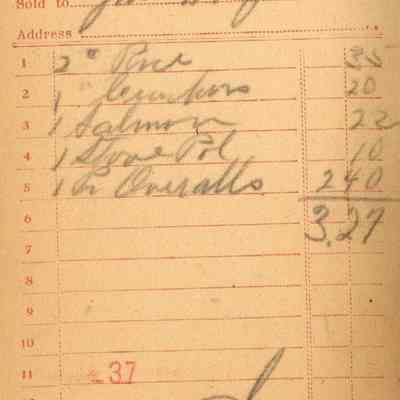 Sold to
Address
1 2 " Rice 35
2 1 " Crackers 20
3 1 Salmon 22
4 1 Stove Pol 10
5 1 Pr Overalls 2 40
6 3.27
7
8
9
10
11 37